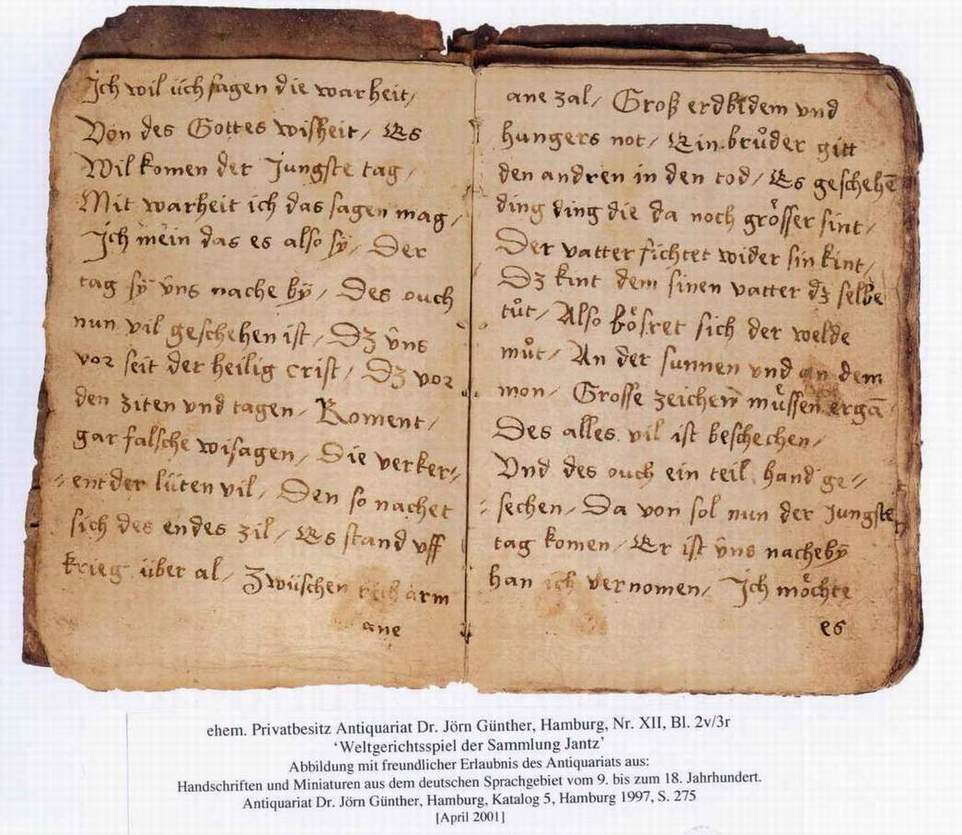 Ich wil üch sagen die warheit/
Von des Gottes wißheit/ Es
Wil komen der Jungste tag/
Mit warheit ich das sagen mag/
Ich mein das es also sÿ/ Der
tag sÿ ûns nache bÿ/ Des ouch
nun vil geschehen ist/ Dʒ ûns
vor seit der heilig crist/ Dʒ vor
den ziten vnd tagen/ Koment/
gar falsche wisagen/ Die verker-//
-//entder lüten vil/ Den so nachet
sich des endes zil/ Es stand vff
krieg über al/ Zwüschen rich arm
ane
ane zal/ Groß erdbidem vnd
hungers not/ Ein brůder gitt
den andren in den tod/ Es geschehē
ding ding die da noch grösser sint/
Der vatter fichtet wider sin kint/
Dʒ kint dem sinen vatter dʒ selbe
tůt/ Also bösret sich der welde
můt/ An der sunnen vnd an dem
mon/ Grosse zeichen müssen ergā/
Des alles vil ist beschechen/
Vnd des ouch ein teil hand ge-//
-//sechen/ Da von sol nun der Jungste
tag komen/ Er ist ûns nachebÿ
han ich vernomen/ Ich möchte
es
ehem. Privatbesitz Antiquariat Dr. Jörn Günther, Hamburg, Nr. XII, Bl. 2v/3r
'Weltgerichtsspiel der Sammlung Jantz'
Abbildung mit freundlicher Erlaubnis des Antiquariats aus:
Handschriften und Miniaturen aus dem deutschen Sprachgebiet vom 9. bis zum 18. Jahrhundert.
Antiquariat Dr. Jörn Günther, Hamburg, Katalog 5, Hamburg 1997, S. 275
[April 2001]